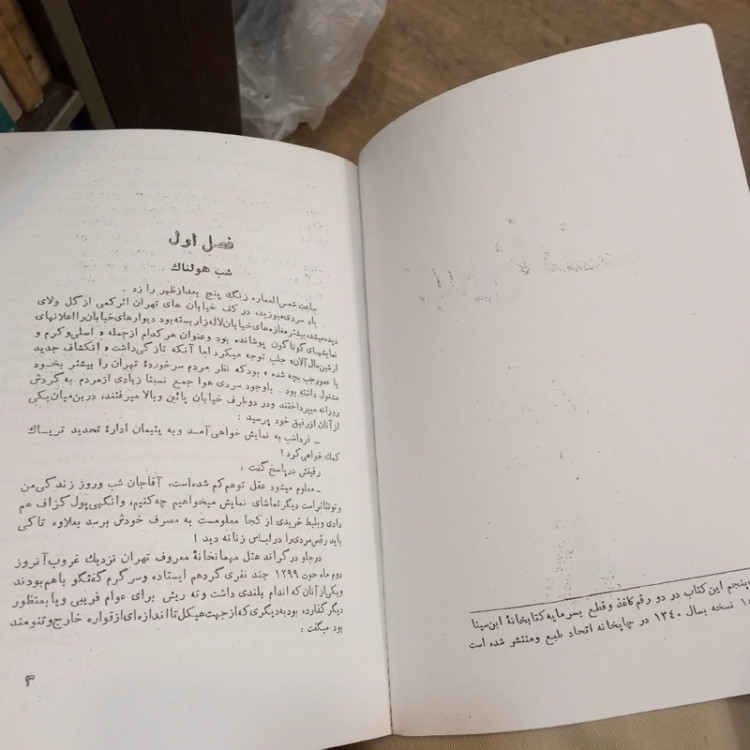 فصل اول
شب هولناك
ساعت شمس‌العماره زنگ پنج بعدازظهر را زد .
باد سردی میوزید، در کف خیابان های تهران اثر کمی از گل ولای
دیده میشد، بیشتر مغازه‌های خیابان لاله‌زار بسته بود دیوارهای خیابان را اعلانهای
نمایشهای گوناگون پوشانده بود وعنوان هرکدام ازجمله « اصلی وکرم و
ارشین مال آلان» جلب توجه میکرد اما آنکه تازگی داشت و انکشاف جدید
یا عمورجب بچه شده » بود که نظر مردم سرخورده تهران را بیشتر بخـود
مشغول داشته بود . باوجود سردی هوا جمع نسبتا زیادی ازمردم به گردش
روزانه میپرداختند ودر دوطرف خیابان پائین وبالا میرفتند، دربن میان یکی
از آنان ازرفیق خود پرسید :
ـ فرداشب به نمایش خواهی آمـد وبه یتیمان ادارۀ تحدید تریـاك
کمك خواهی کرد !
رفیقش درپاسخ گفت :
ـ معلوم میشود عقل توهم کم شده‌است، آقاجان شب وروز زندگی من
وتوتئاتراست دیگر تماشای نمایش میخواهیم چه کنیم، وانگهی پول گزاف هم
دادی وبلیط خریدی از کجا معلومست به مصرف خودش برسد بعلاوه تاکی
باید رقص مردی را درلباس زنانه دید !
درجلو در گراند هتل میهمانخانۀ معروف تهران نزدیك غروب آنروز
دوم ماه حوت ۱۲۹۹ چند نفری گردهم ایستاده وسر گرم گفتگو باهم بودند
ویکی از آنان که اندام بلندی داشت وته ریش برای عوام فریبی ویا بمنظور
دیگر گذارده بود به دیگری که ازجهت هیکل تا اندازه‌ای از قواره خارج وتنومند
بود میگفت :
۳
پنجم این کتاب در دو رقم کاغذ و قطع بسرمایه کتابخانۀ ابن‌سینا
نسخه بسال ۱۳۴۰ در چاپخانه اتحاد طبع ومنتشر شده است